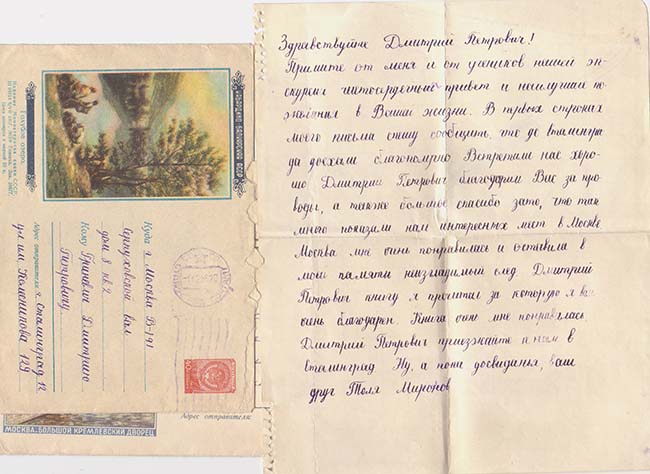 Здравствуйте Дмитрий Петрович!
Примите от меня и от учеников нашей эк-
скурсии чистосердечный привет и наилучшие по-
желания в Вашей жизни. В первых строчках
моего письма спешу сообщить, что до Сталингра
да доехали благополучно Встретили нас хоро-
шо Дмитрий Петрович благодарим Вас за про-
воды, а также большое спасибо зато, что так
много показали нам интересных мест в Москве
Москва мне очень понравилась и оставила в
моей памяти неизгладимый след Дмитрий
Петрович книгу я прочитал за которую я вам
очень благодарен. Книга очень мне понравилась
Дмитрий Петрович приезжайте к нам в
Сталинград Ну, а пока досвиданья, ваш
друг Толя Миронов
Куда г. Москва В-191
Серпуховской вал
дом 8 кв 2
Кому Гриневич Дмитрию
Петровичу
Адрес отправителя: г. Сталинград 12
ул им.
129
Голубое озеро.
Издание Министерства связи СССР.
МЕЖДУНАРОДНОЕ
Адрес отправителя:
МОСКВА. БОЛЬШОЙ КРЕМЛЕВСКИЙ ДВОРЕЦ